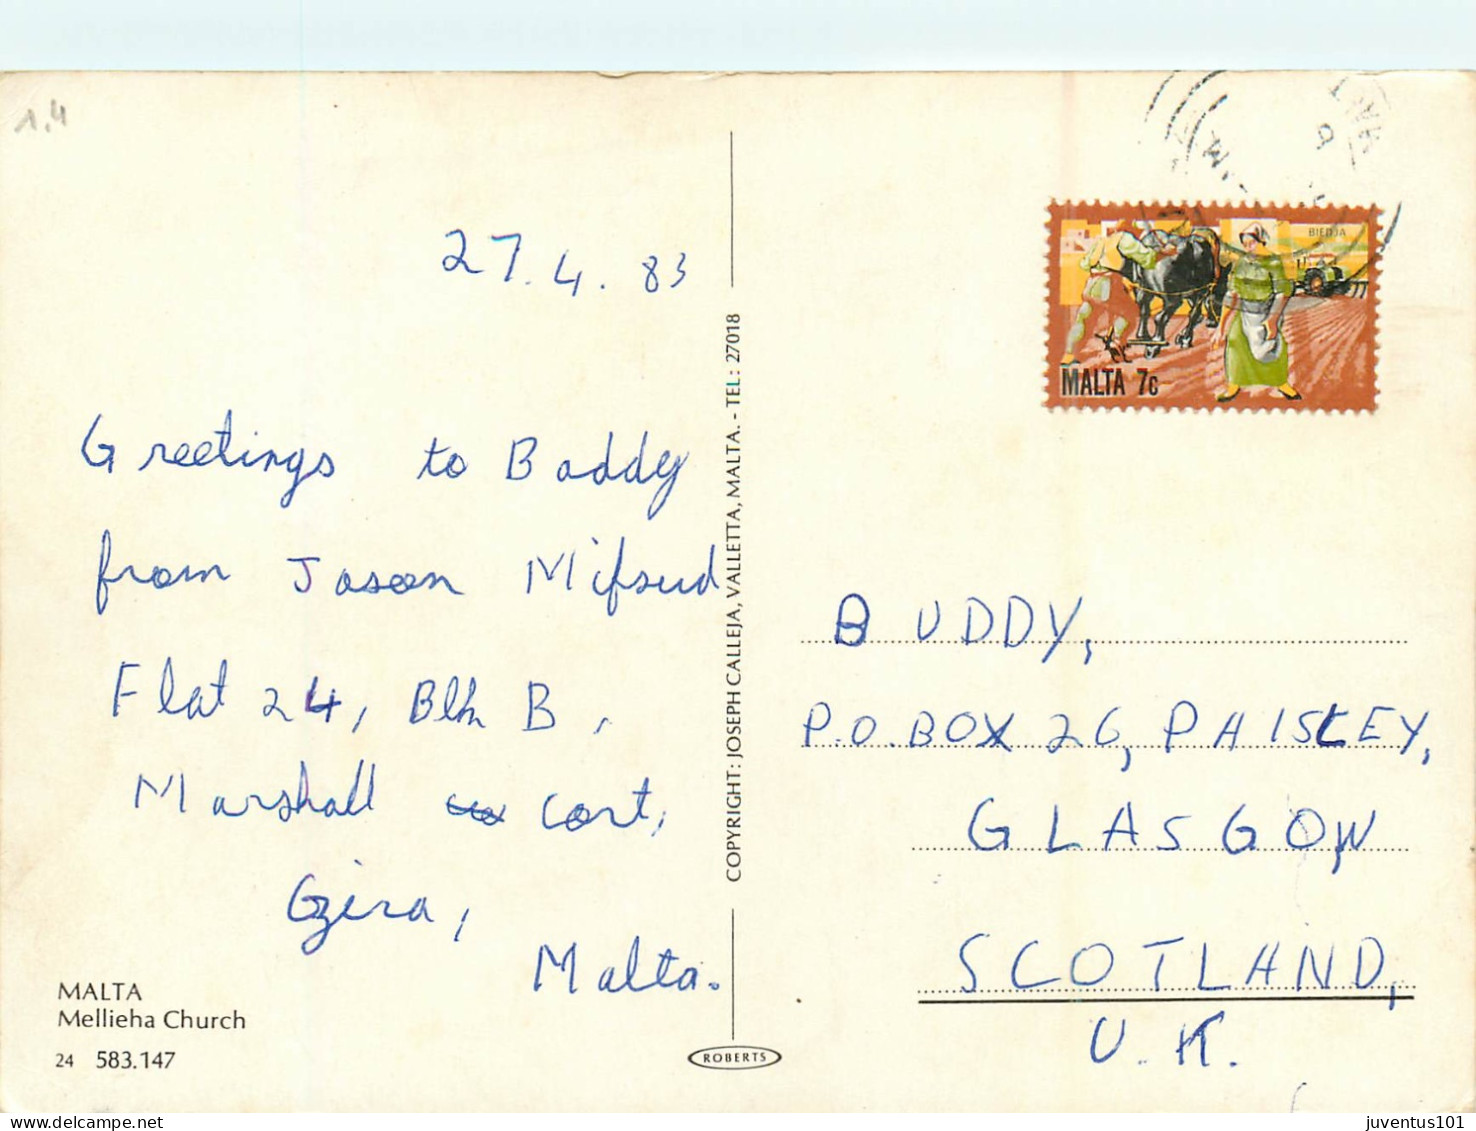 1,4
27.4.83
Greetings to Baddy
from Jason Mifsud
Flat 24, Blk B,
Marshall Cort,
Gzira,
Malta.
MALTA
Mellieha Church
24 583.147
COPYRIGHT: JOSEPH CALLEJA, VALLETTA, MALTA. - TEL: 27018
ROBERTS
BIEDJA
MALTA 7c
BUDDY,
P.O. BOX 26, PAISLEY,
GLASGOW
SCOTLAND,
U.K.
juventus101